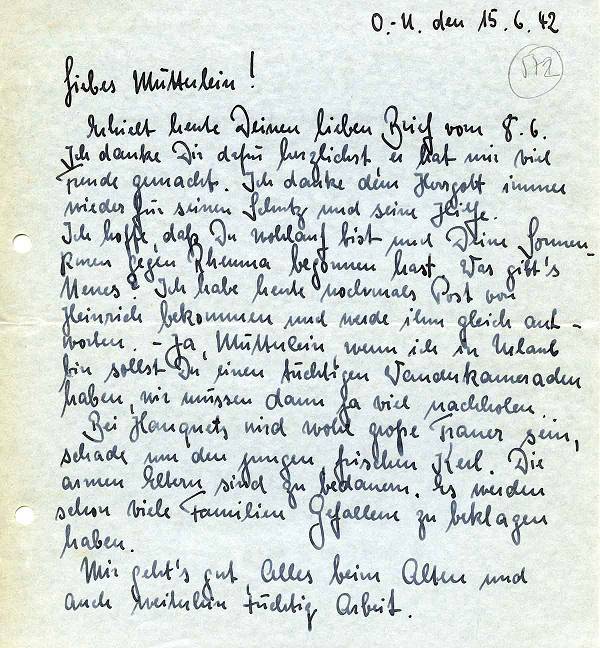 O.-U. den 15.6.42
572
Liebes Mütterlein!
Erhielt heute Deinen lieben Brief vom 8.6.
Ich danke Dir dafür herzlichst es hat mir viel
Freude gemacht. Ich danke dem Herrgott immer
wieder für seinen Schutz und seine Hilfe.
Ich hoffe, daß Du wohlauf bist und Deine Sonnen-
kuren gegen Rheuma begonnen hast. Was gibt's
Neues? Ich habe heute nochmals Post von
Heinrich bekommen und werde ihm gleich ant-
worten. - Ja, Mütterlein, wenn ich in Urlaub
bin sollst Du einen tüchtigen Wanderkameraden
haben, wir müssen dann ja viel nachholen.
Bei Hanquets wird wohl große Trauer sein,
schade um den jungen, frischen Kerl. Die
armen Eltern sind zu bedauern. Es werden
schon viele Familien Gefallene zu beklagen
haben.
Mir geht's gut, Alles beim Alten und
auch weiterhin tüchtig Arbeit.